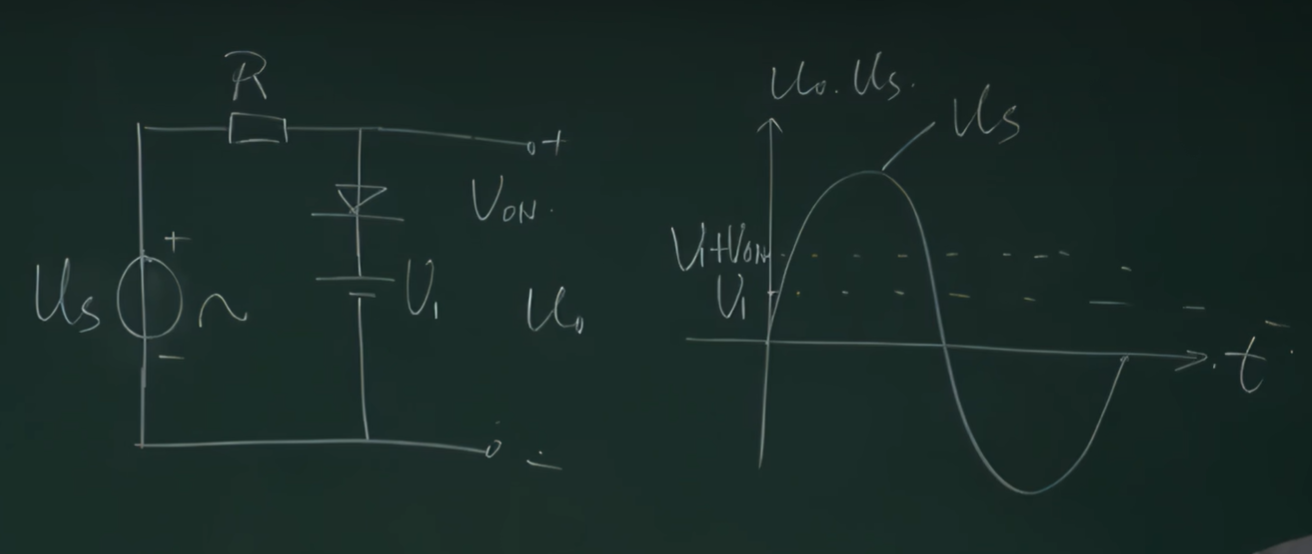 R
+
V_ON.
+
Us
~
-
U₁
Uo
-
Uo. Us.
Us
U₁+V_ON
U₁
t